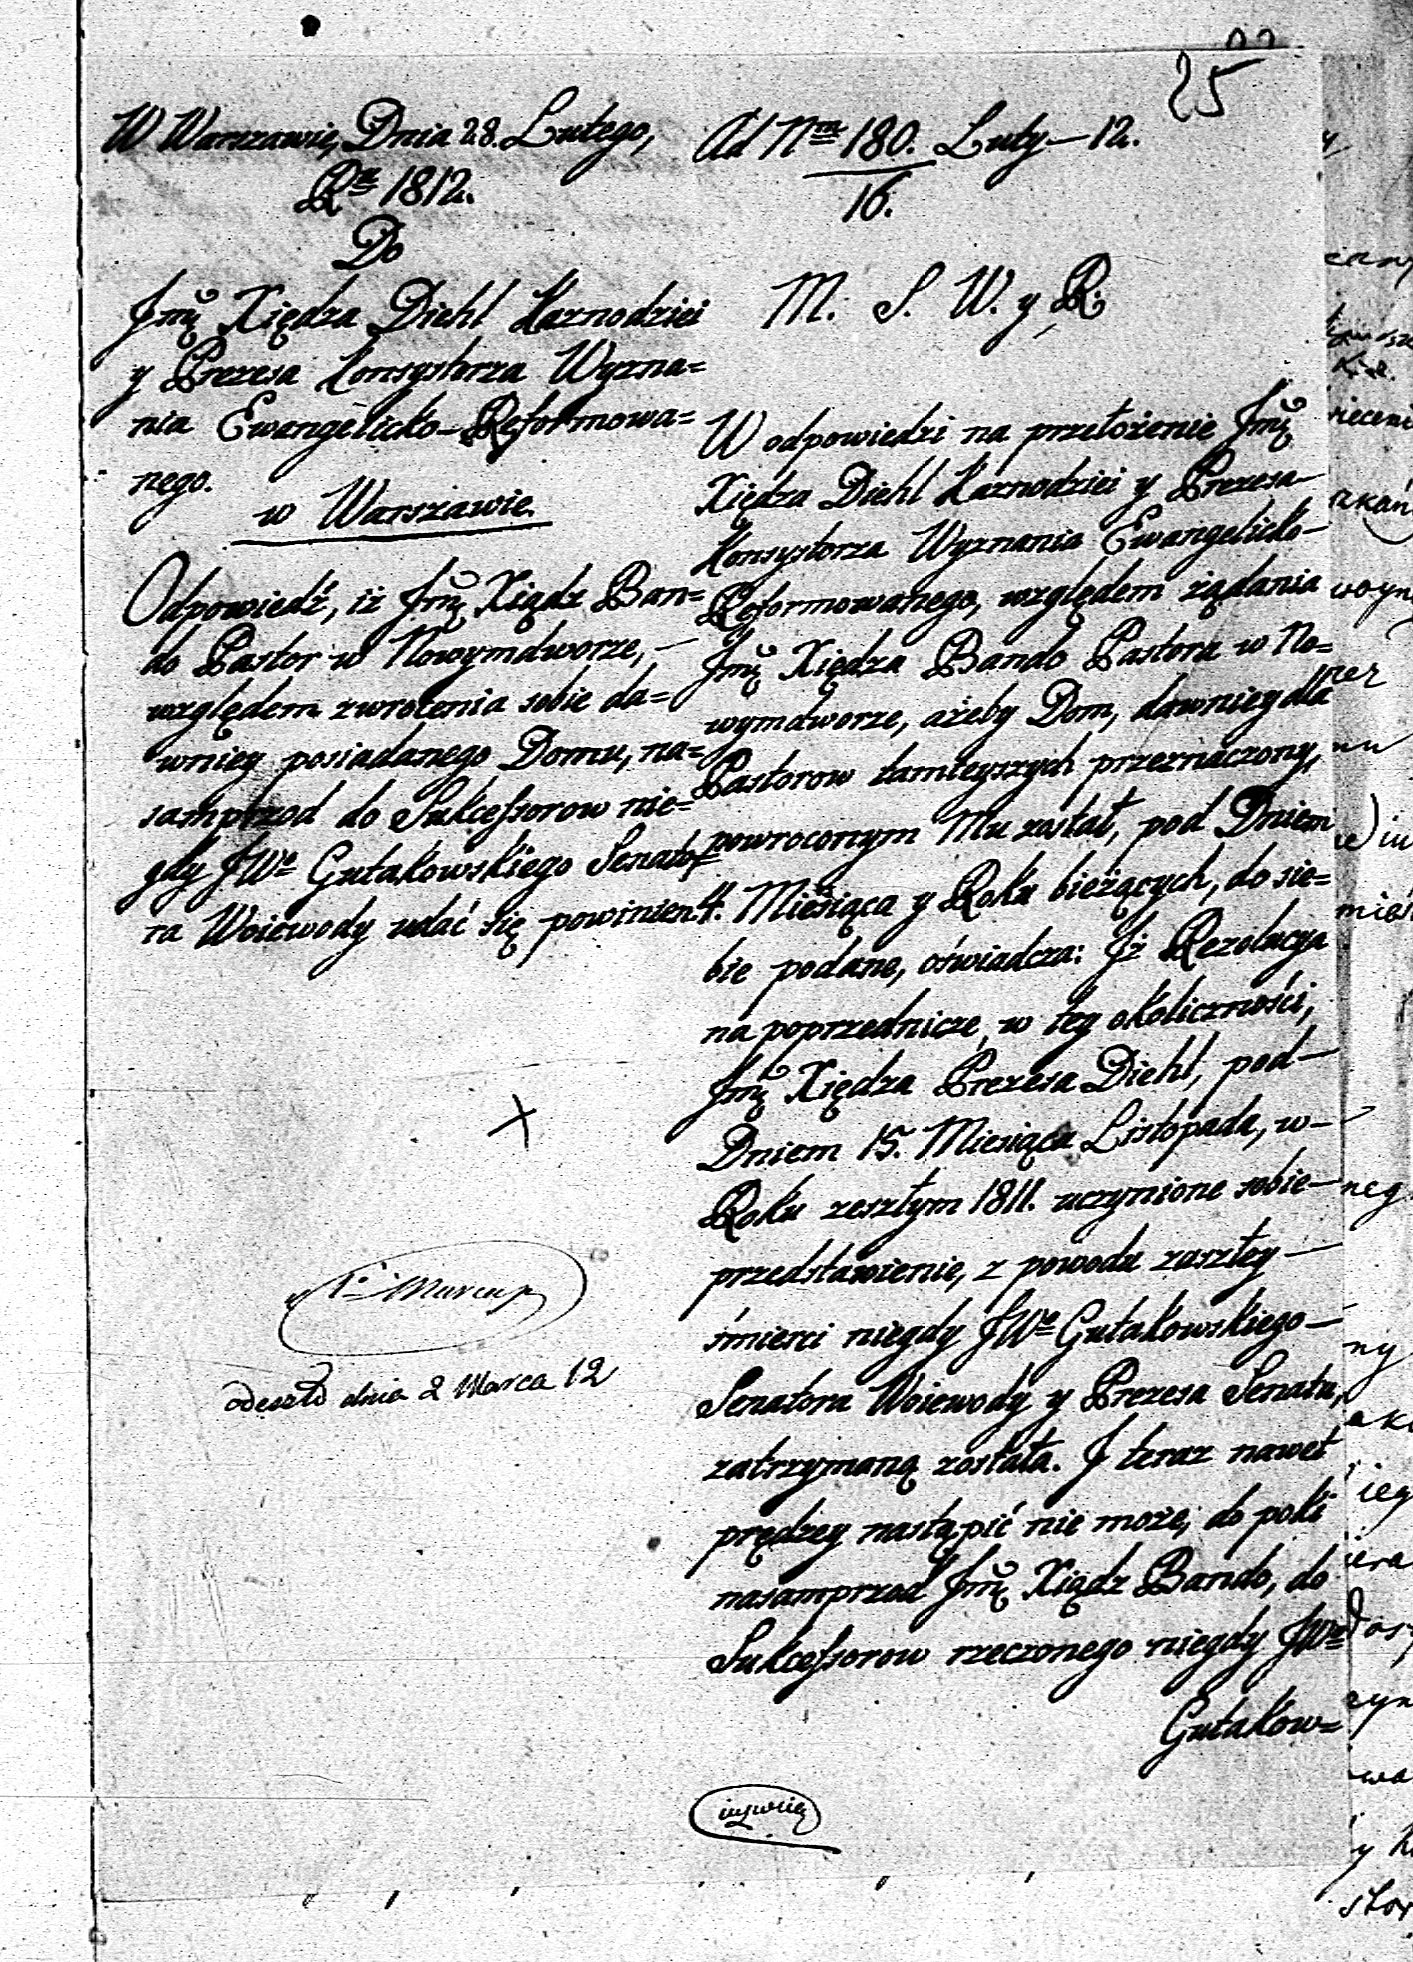 25
W Warszawie, Dnia 28. Lutego,
Ra 1812.
Do
Jmć Xiędza Diehl Kaznodziei
y Prezesa Konsystorza Wyzna=
nia Ewangelicko-Reformowa=
nego.
w Warszawie.
Odpowiedź, iż Jmć Xiądz Ban=
do Pastor w Nowymdworze, —
względem zwrocenia sobie da=
wniey posiadanego Domu, na=
samprzod do Sukcessorow nie=
gdy JWo Gutakowskiego Senato=
ra Woiewody udać się powinien.
Marca
Odeszło dnia 2 Marca 12
Ad Nm 180. Luty — 12.
16.
M. S. W. y R.
W odpowiedzi na przełożenie Jmć
Xiędza Diehl Kaznodziei y Prezesa —
Konsystorza Wyznania Ewangelicko —
Reformowanego, względem żądania
Jmć Xiędza Bando Pastora w No=
wymdworze, ażeby Dom, dawniey dla
Pastorow tamteyszych przeznaczony,
powroconym Mu został, pod Dniem
4. Miesiąca y Roku bieżących, do sie=
bie podane, oświadcza: Jż Rezolucya
na poprzednicze, w tey okoliczności,
Jmć Xiędza Prezesa Diehl, pod —
Dniem 15. Miesiąca Listopada, w —
Roku zeszłym 1811. uczynione sobie —
przedstawienie, z powodu zaszłey —
śmierci niegdy JWo Gutakowskiego —
Senatora Woiewody y Prezesa Senatu,
zatrzymaną została. J teraz nawet
prędzey nastąpić nie może, do poki
nasamprzod Jmć Xiądz Bando, do
Sukcessorow rzeczonego niegdy JWo
Gutakow=